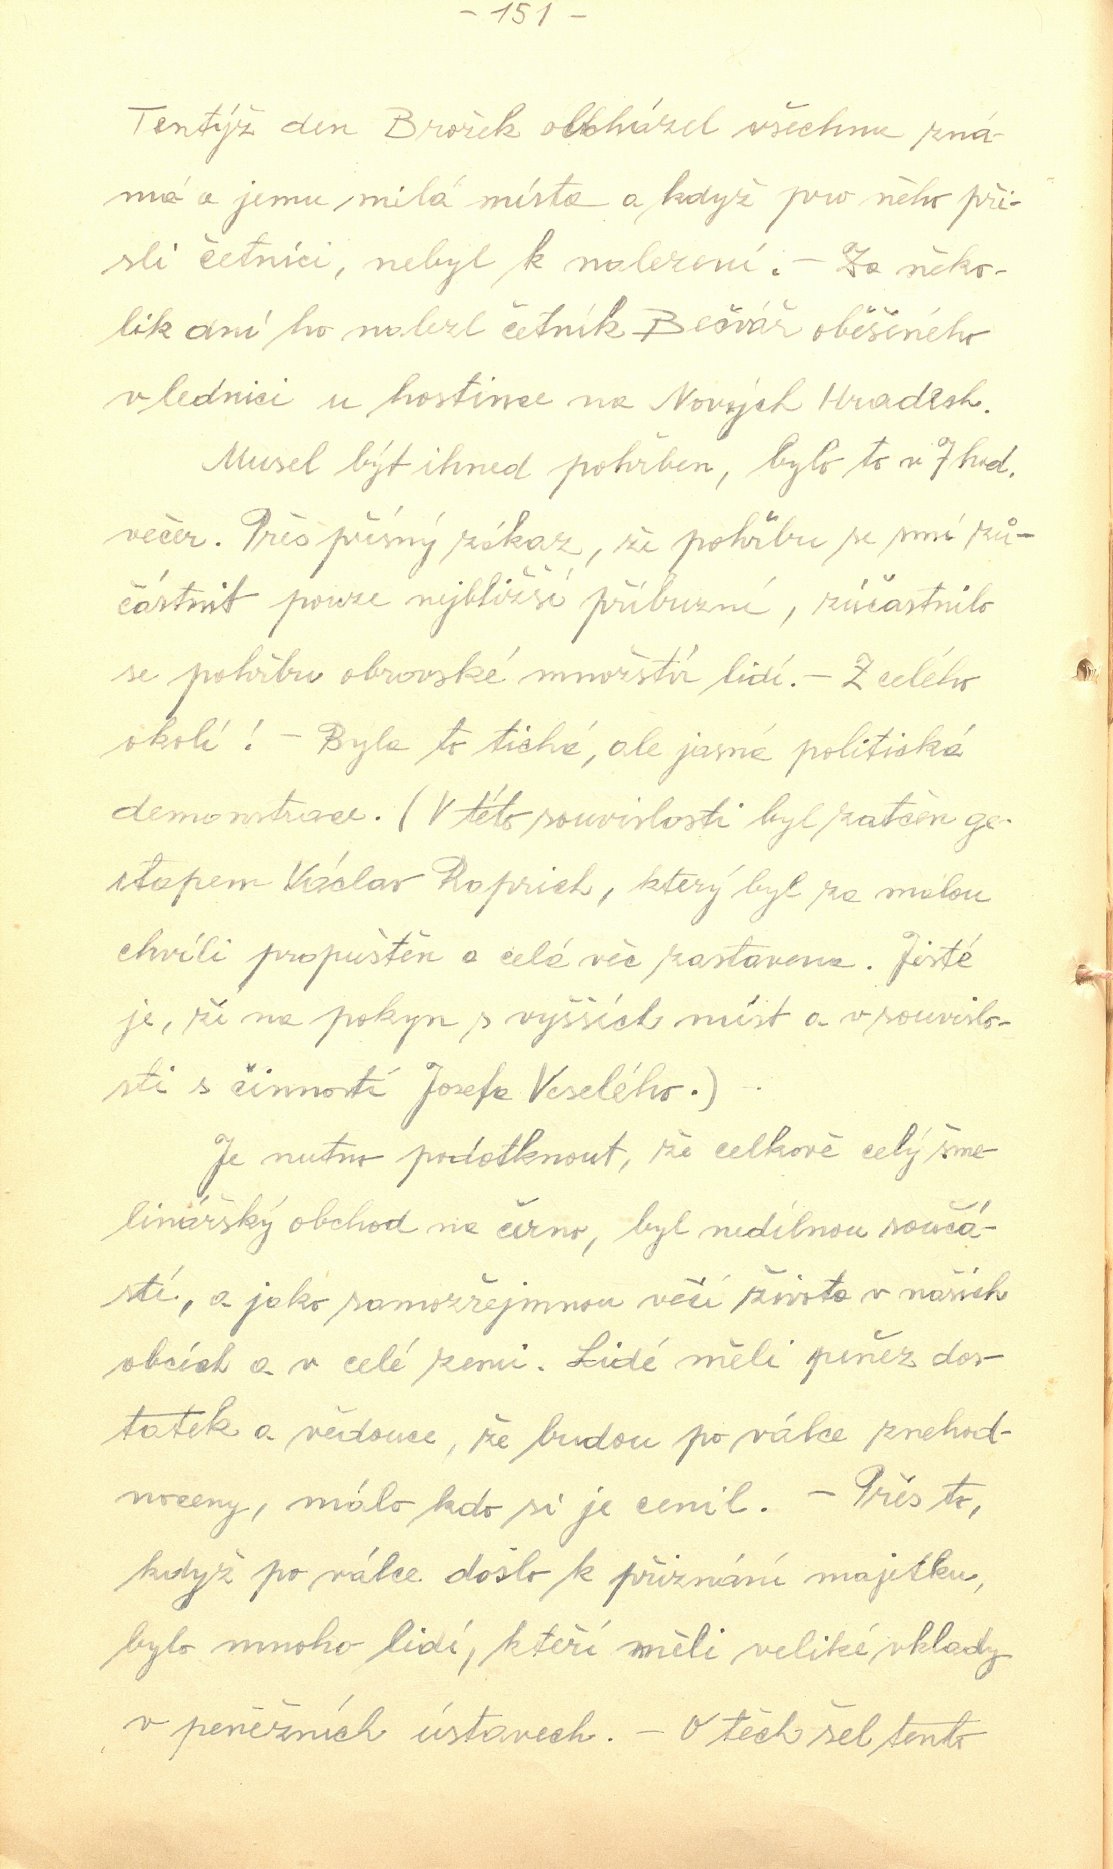 - 151 -
Tentýž den Brožek obcházel všechna zná-
má a jemu milá místa a když pro něho při-
šli četníci, nebyl k nalezení. - Za něko-
lik dní ho nalezl četník Bešvář oběšeného
v lednici u hostince na Nových Hradech.
Musel být ihned pohřben, bylo to v 7 hod.
večer. Přes přísný zákaz, že pohřbu se smí zů-
částnit pouze nejbližší příbuzní, zúčastnilo
se pohřbu obrovské množství lidí. - Z celého
okolí! - Byla to tichá, ale jasná politická
demonstrace. (V této souvislosti byl zatčen ge-
stapem Václav Raprich, který byl za malou
chvíli propuštěn a celá věc zastavena. Jisté
je, že na pokyn s vyšších míst a v souvislo-
sti s činností Josefa Veselého.) -
Je nutno podotknout, že celkově celý šme-
linářský obchod na černo, byl nedílnou součá-
stí, a jako samozřejmnou věcí života v našich
obcích a v celé zemi. Lidé měli peněz dos-
tatek a vědouce, že budou po válce znehod-
noceny, málo kdo si je cenil. - Přes to,
když po válce došlo k přiznání majetku,
bylo mnoho lidí, kteří měli veliké vklady
v peněžních ústavech. - O těch šel tento